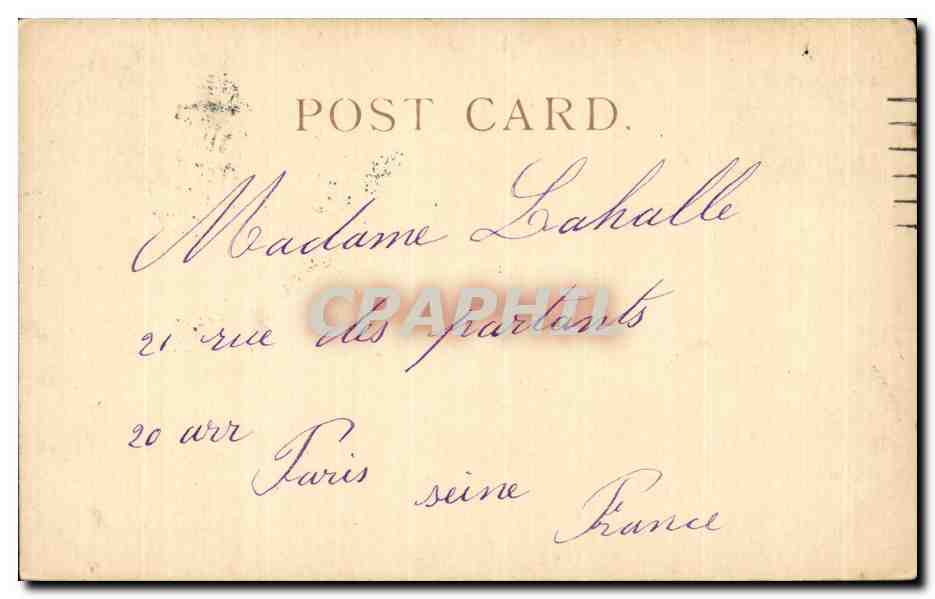 POST CARD.
Madame Lahalle
CPAPHIL
21 rue des partants
20 arr
Paris seine France